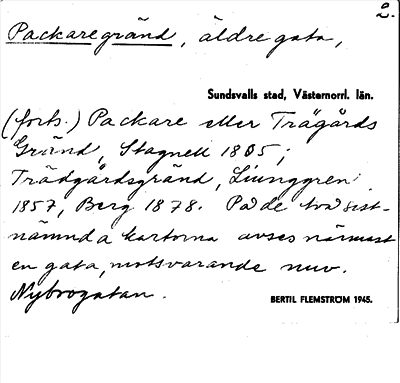 2.
Packaregränd, äldre gata,
Sundsvalls stad, Västernorrl. län.
(forts.) Packare eller Trägårds
Gränd, Stagnell 1805;
Trädgårdsgränd, Ljunggren
1857, Berg 1878. På de två sist-
nämnda kartorna avses närmast
en gata, motsvarande nuv.
Nybrogatan.
BERTIL FLEMSTRÖM 1945.